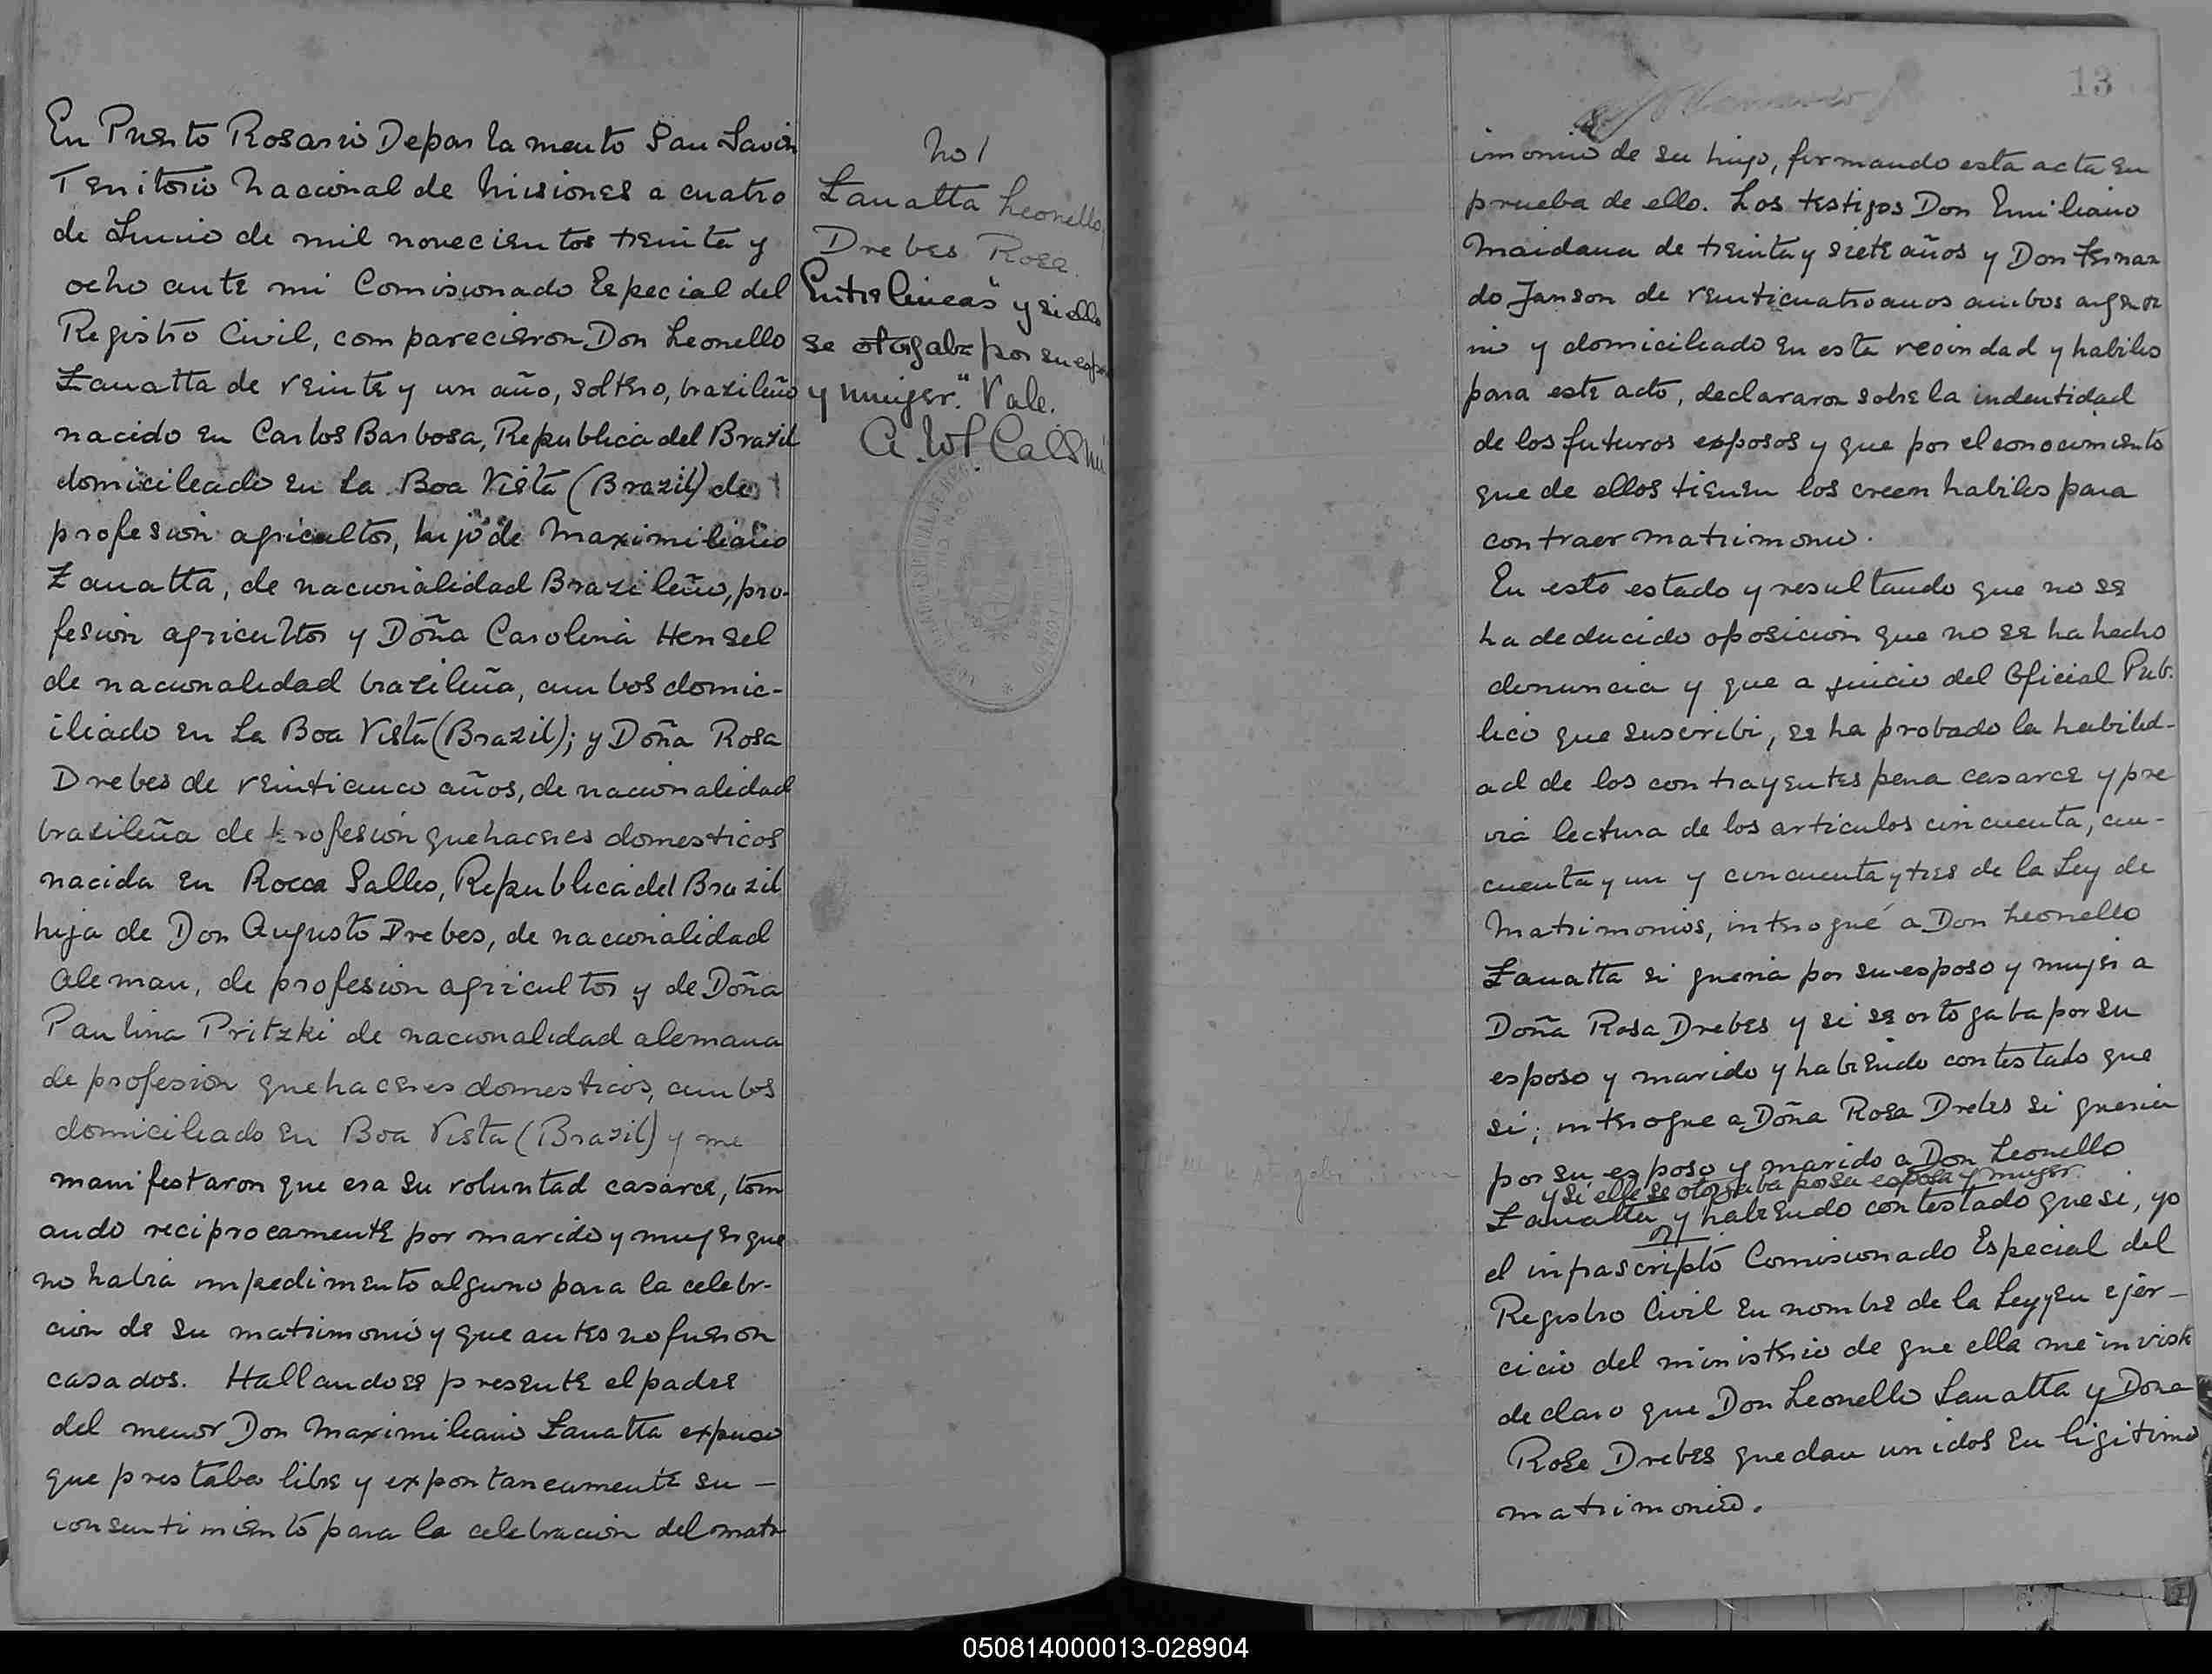 En Puerto Rosario Departamento San Javier
Territorio Nacional de Misiones a cuatro
de Junio de mil novecientos treinta y
ocho ante mi Comisionado Especial del
Registro Civil, comparecieron Don Leonello
Zanatta de veinte y un año, soltero, brazileño
nacido en Carlos Barbosa, Republica del Brazil
domicileado en La Boa Vista (Brazil) de
profesion agricultor, hijo de Maximiliano
Zanatta, de nacionalidad Brazileño, pro-
fesion agricultor y Doña Carolina Hensel
de nacionalidad brazileña, ambos domic-
iliado en La Boa Vista (Brazil); y Doña Rosa
Drebes de veinticinco años, de nacionalidad
brazileña de profesion quehaceres domesticos
nacida en Rocca Salles, Republica del Brazil
hija de Don Augusto Drebes, de nacionalidad
Aleman, de profesion agricultor y de Doña
Paulina Pritzki de nacionalidad alemana
de profesion quehaceres domesticos, ambos
domicileado en Boa Vista (Brazil) y me
manifestaron que era su voluntad casarce, tom
ando reciprocamente por marido y mujer que
no habia impedimento alguno para la celebr-
cion de su matrimonio y que antes no fueron
casados. Hallandose presente el padre
del menor Don Maximiliano Zanatta expuso
que prestaba libre y expontaneamente su -
consentimiento para la celebracion del matr
No 1
Zanatta Leonello
Drebes Rosa.
Entrelineas "y si ella
se otorgaba por su espo
y mujer." Vale.
13
imonio de su hijo, firmando esta acta en
prueba de ello. Los testigos Don Emiliano
Maidana de treinta y siete años y Don Fernan
do Janson de veinticuatro anos ambos argenti
no y domicileado en esta vecindad y habiles
para este acto, declararon sobre la indentidad
de los futuros esposos y que por el conocimiento
que de ellos tienen los creen habiles para
contraer matrimonio.
En esto estado y resultando que no se
ha deducido oposicion que no se ha hecho
denuncia y que a juicio del Oficial Pub.
lico que suscribi, se ha probado la habilid-
ad de los contrayentes pena casarce y pre
via lectura de los articulos cincuenta, cin-
cuenta y un y cincuenta y tres de la Ley de
Matrimonios, interogué a Don Leonello
Zanatta si queria por su esposo y mujer a
Doña Rosa Drebes y si se ortogaba por su
esposo y marido y habiendo contestado que
si; interogue a Doña Rosa Drebes si queria
por su esposo y marido a Don Leonello
y si ella se otorgaba por su esposa y mujer
Zanatta y habiendo contestado que si, yo
el infrascripto Comisionado Especial del
Registro Civil en nombre de la Ley y en ejer-
cicio del ministerio de que ella me inviste
declaro que Don Leonello Zanatta y Dona
Rosa Drebes quedan unidos en ligitimo
matrimonio.
050814000013-028904